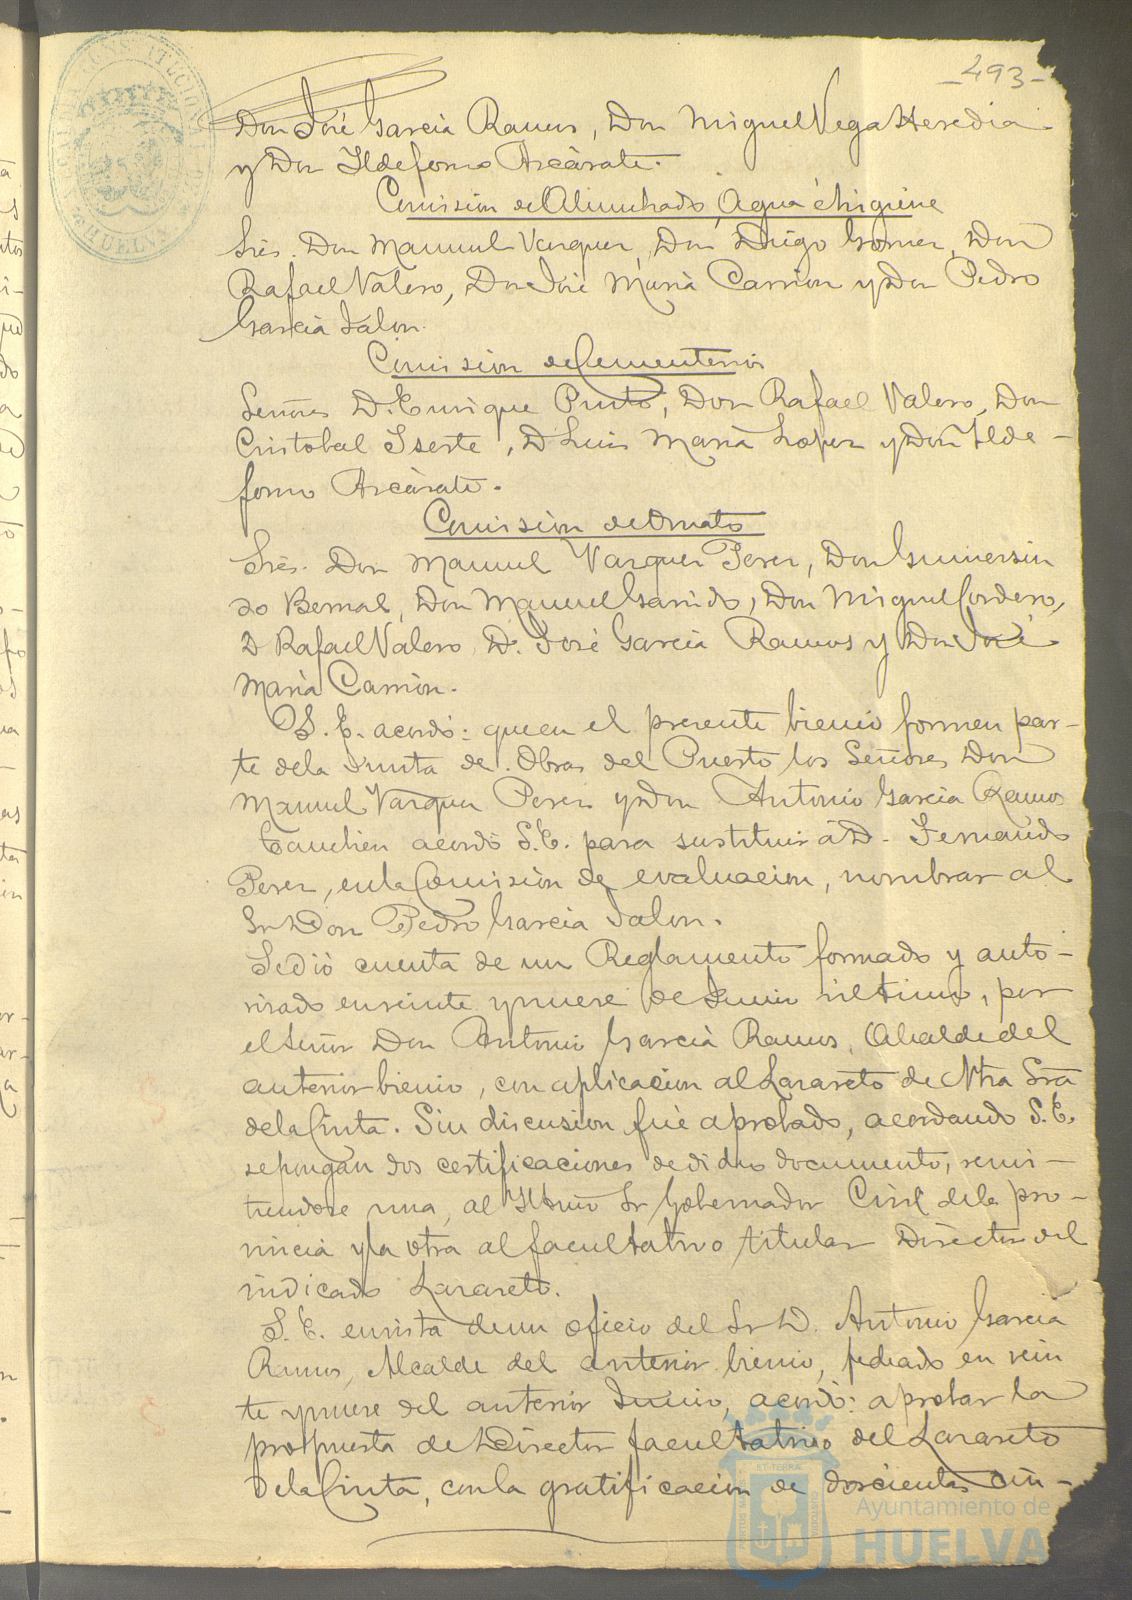 -293-
Don José Garcia Ramos, Don Miguel Vega Heredia
y Don Ildefonso Azcárate.
Comisión de Alumbrado, Agua é higiene
Sres. Don Manuel Vazquez, Don Diego Gomez, Don
Rafael Valero, Don José Maria Carrion y Don Pedro
Garcia Jalon.
Comisión de Cementerios
Señores D. Enrique Pinto, Don Rafael Valero, Don
Cristobal Iserte, D Luis Maria Lopez y Don Ilde-
fonso Azcárate.
Comisión de Ornato
Sres. Don Manuel Vazquez Perez, Don Gumersin
do Bernal, Don Manuel Garrido, Don Miguel Cordero,
D Rafael Valero D. José Garcia Ramos y Don José
Maria Carrion.
S. E. acordó: que en el presente bienio formen par-
te de la Junta de Obras del Puerto los Señores Don
Manuel Vazquez Perez y Don Antonio Garcia Ramos
Tambien acordó S.E. para sustituir á D. Fernando
Perez, en la Comisión de evaluacion, nombrar al
Sr Don Pedro Garcia Jalon.
Se dió cuenta de un Reglamento formado y auto-
rizado en veinte y nueve de Junio último, por
el Señor Don Antonio Garcia Ramos, Alcalde del
anterior bienio, con aplicacion al Lazareto de Ntra Sra
de la Cinta. Sin discusion fué aprobado, acordando S.E.
se pongan dos certificaciones de dicho documento, remi-
tiendose una, al Iltmo Sr Gobernador Civil de la pro-
vincia y la otra al facultativo titular Director del
indicado Lazareto.
S. E. en vista de un oficio del Sr D. Antonio Garcia
Ramos, Alcalde del anterior bienio, fechado en vein
te y nueve del anterior Junio, acordó: aprobar la
propuesta de Director facultativo del Lazareto
de la Cinta, con la gratificacion de doscientas cin-
Ayuntamiento de
HUELVA